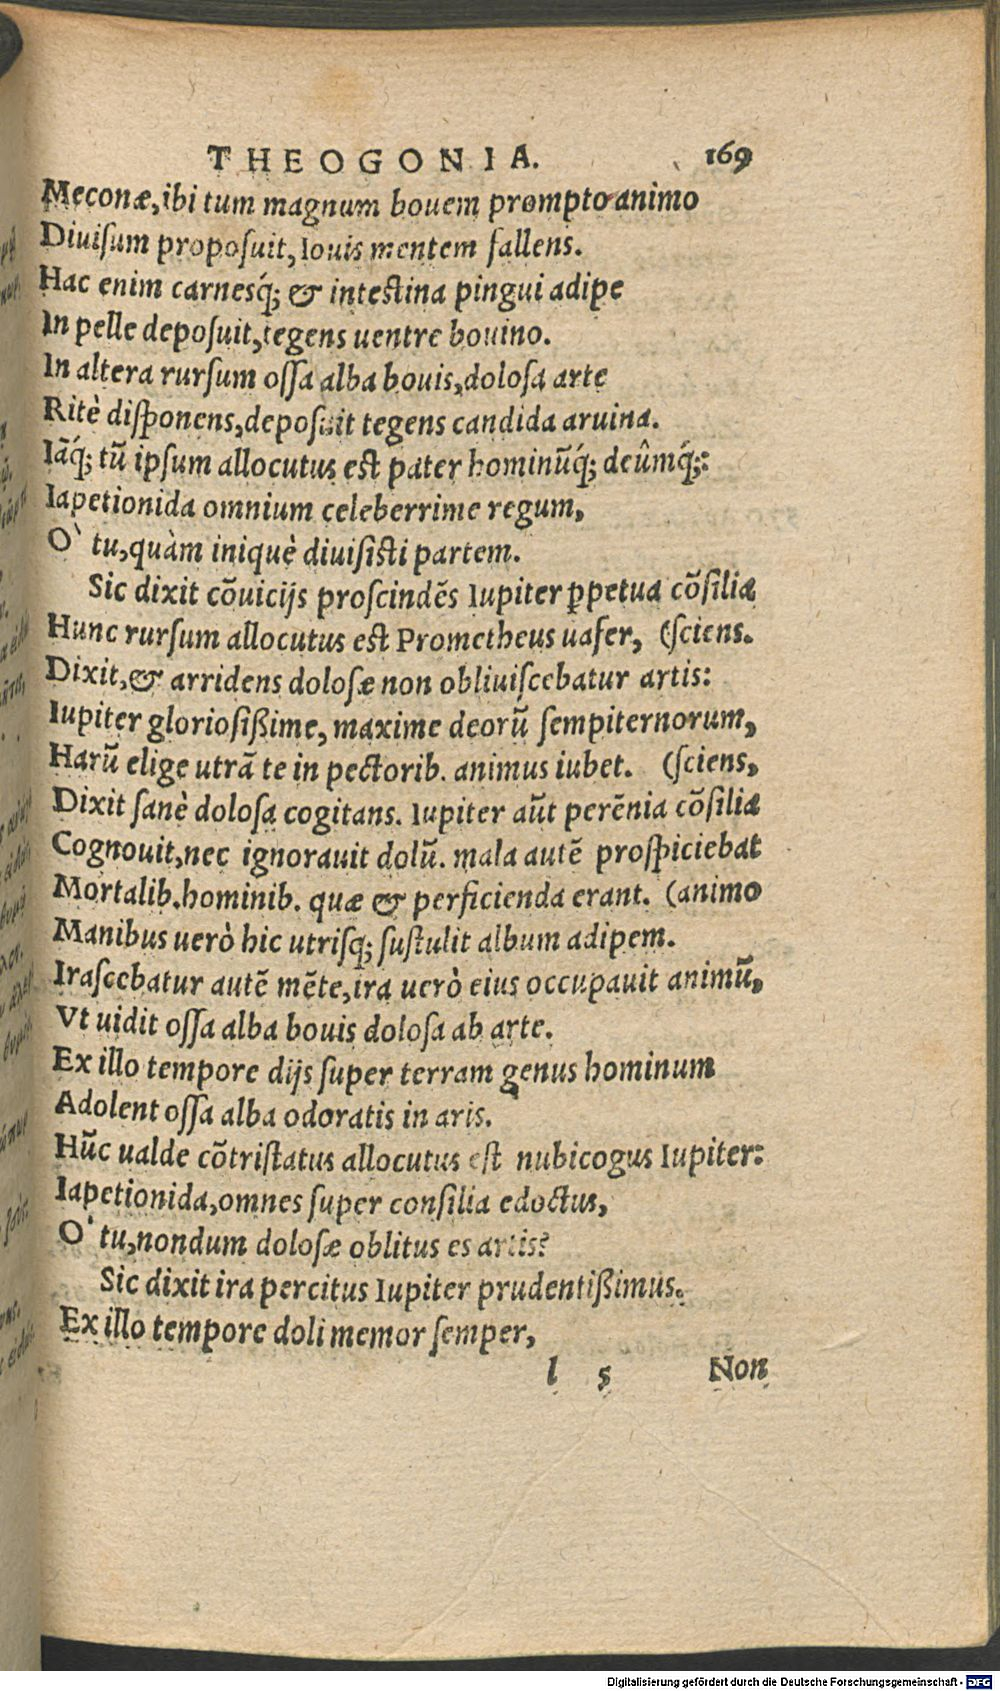 THEOGONIA. 169
Meconæ, ibi tum magnum bouem prompto animo
Diuiſum propoſuit, Iouis mentem fallens.
Hac enim carnesq́; & inteſtina pingui adipe
In pelle depoſuit, tegens uentre bouino.
In altera rurſum oſſa alba bouis, doloſa arte
Ritè diſponens, depoſuit tegens candida aruina.
Iãq́; tũ ipſum allocutus eſt pater hominũq́; deûmq́;:
Iapetionida omnium celeberrime regum,
O` tu, quàm iniquè diuiſiſti partem.
Sic dixit cõuicijs proſcindẽs Iupiter ꝑpetua cõſilia
Hunc rurſum allocutus eſt Prometheus uafer, (ſciens.
Dixit, & arridens doloſæ non obliuiſcebatur artis:
Iupiter glorioſißime, maxime deorũ ſempiternorum,
Harũ elige utrã te in pectorib. animus iubet. (ſciens,
Dixit ſanè doloſa cogitans. Iupiter aũt perẽnia cõſilia
Cognouit, nec ignorauit dolũ. mala autẽ proſpiciebat
Mortalib. hominib. quæ & perficienda erant. (animo
Manibus uerò hic utriſq; ſuſtulit album adipem.
Iraſcebatur autẽ mẽte, ira uerò eius occupauit animũ,
Vt uidit oſſa alba bouis doloſa ab arte.
Ex illo tempore dijs ſuper terram genus hominum
Adolent oſſa alba odoratis in aris.
Hũc ualde cõtriſtatus allocutus eſt nubicogus Iupiter:
Iapetionida, omnes ſuper conſilia edoctus,
O` tu, nondum doloſæ oblitus es artis?
Sic dixit ira percitus Iupiter prudentißimus.
Ex illo tempore doli memor ſemper,
l 5 Non
Digitalisierung gefördert durch die Deutsche Forschungsgemeinschaft - DFG